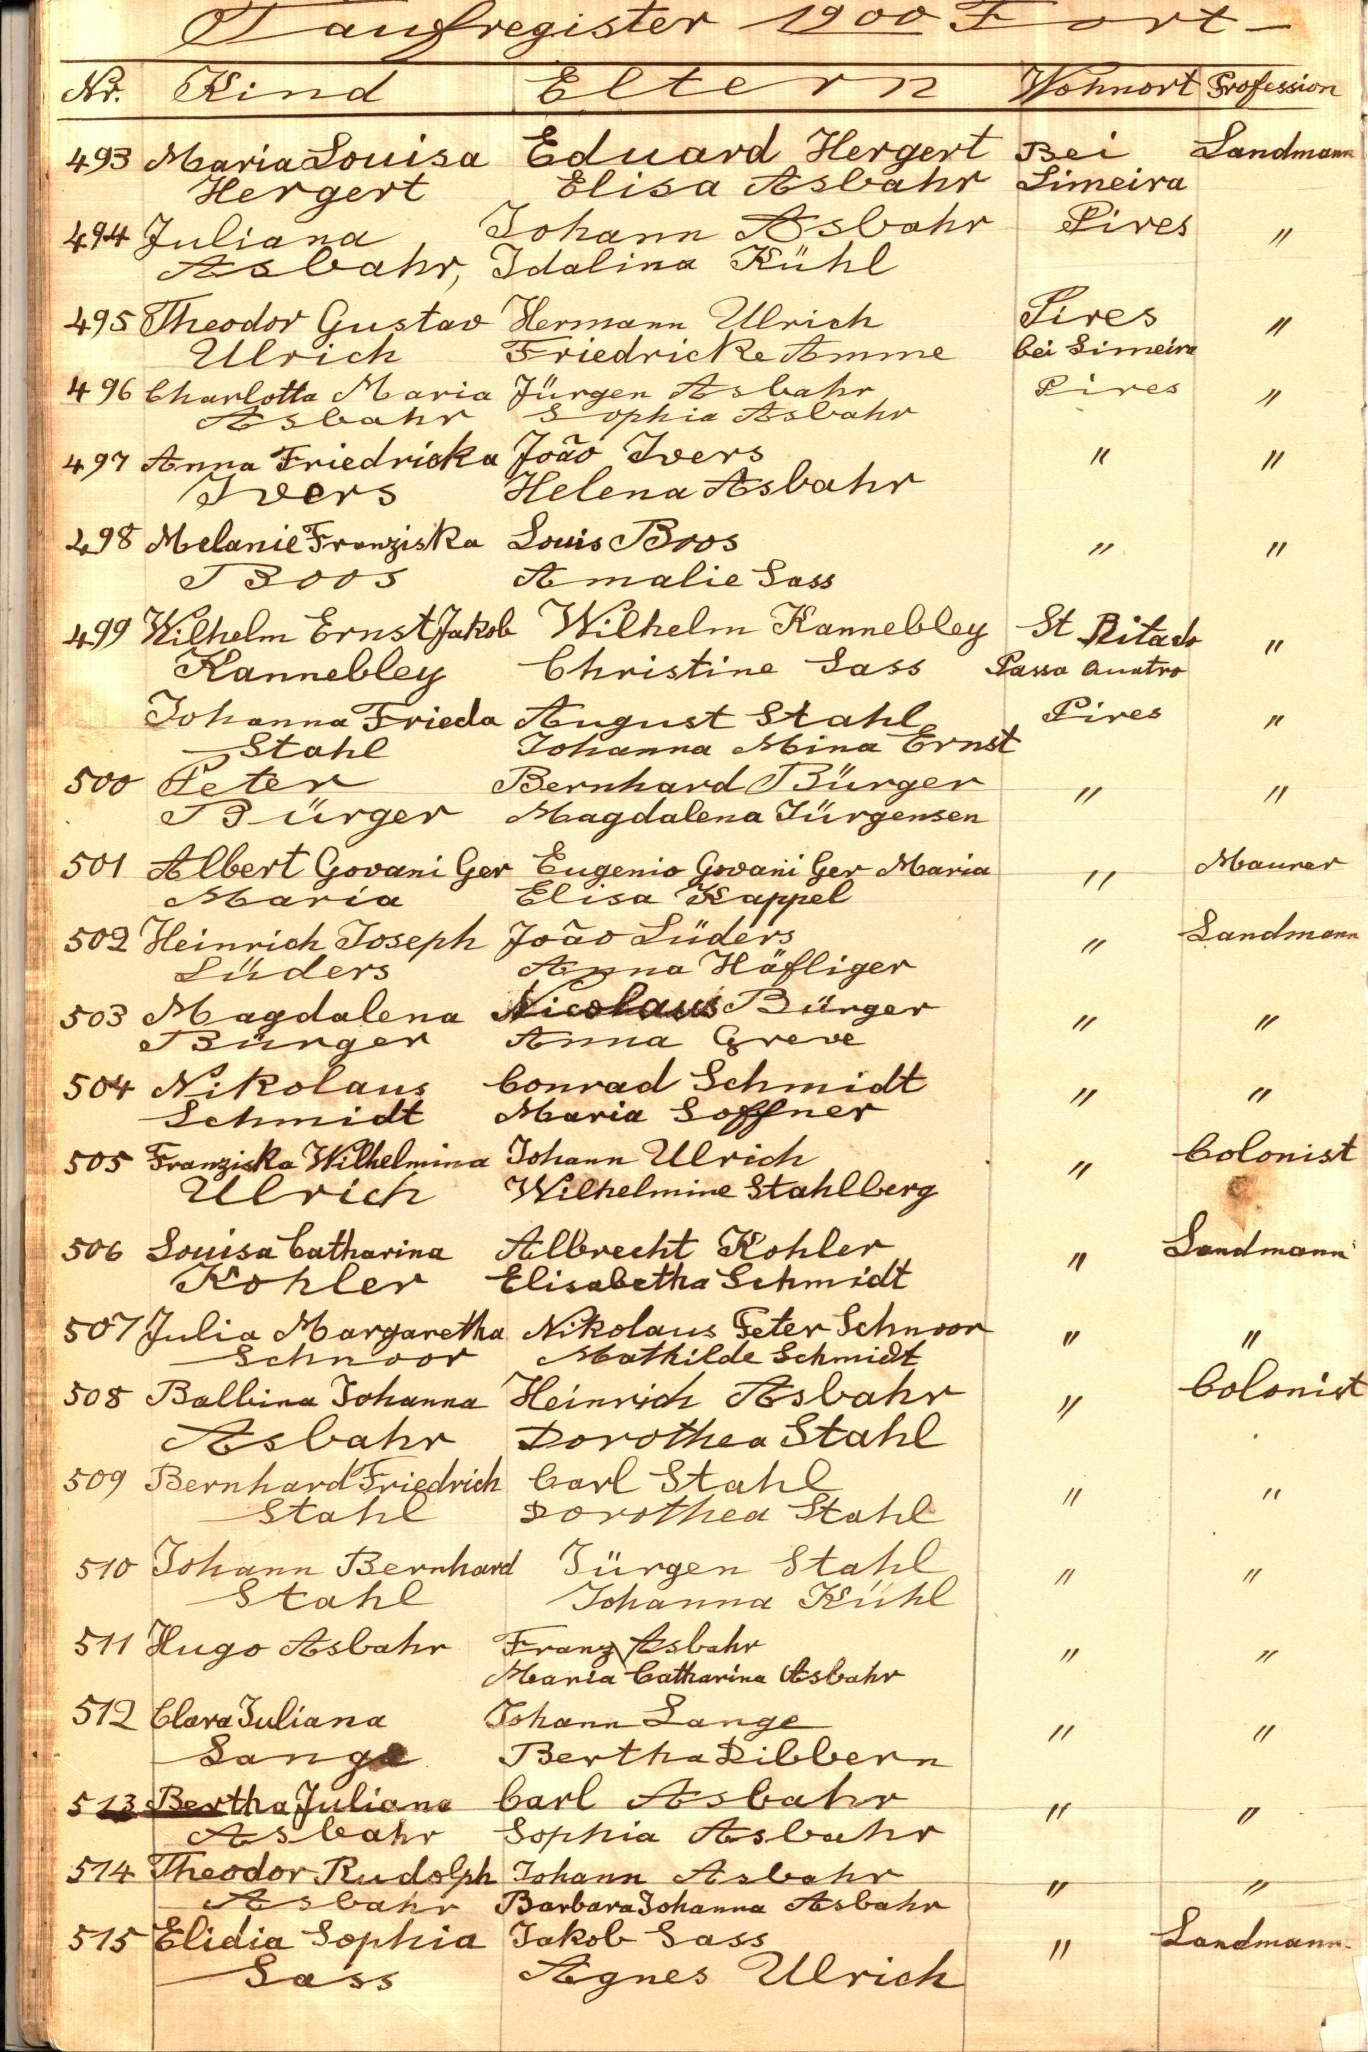 Taufregister 1900 Fort-
Nr. Kind Eltern Wohnort Profession
493 Maria Louisa Eduard Hergert Bei Landmann
Hergert Elisa Asbahr Limeira
494 Juliana Johann Asbahr Pires "
Asbahr, Idalina Kühl
495 Theodor Gustav Hermann Ulrich Pires "
Ulrich Friedricke Amme bei Limeira
496 Charlotta Maria Jürgen Asbahr Pires "
Asbahr Sophia Asbahr
497 Anna Friedricka João Ivers " "
Ivers Helena Asbahr
498 Melanie Franziska Louis Boos " "
Boos Amalie Sass
499 Wilhelm Ernst Jakob Wilhelm Kannebley St Rita do "
Kannebley Christine Sass Passa Quatro
Johanna Frieda August Stahl Pires "
Stahl Johanna Mina Ernst
500 Peter Bernhard Bürger " "
Bürger Magdalena Jürgensen
501 Albert Govani Ger Eugenio Govani Ger Maria " Maurer
Maria Elisa Kappel
502 Heinrich Joseph João Lüders " Landmann
Lüders Anna Häfliger
503 Magdalena Nicolaus Bürger " "
Bürger Anna Greve
504 Nikolaus Conrad Schmidt " "
Schmidt Maria Soffner
505 Franziska Wilhelmina Johann Ulrich " Colonist
Ulrich Wilhelmine Stahlberg
506 Louisa Catharina Albrecht Kohler " Landmann
Kohler Elisabetha Schmidt
507 Julia Margaretha Nikolaus Peter Schnoor " "
Schnoor Mathilde Schmidt
508 Balbina Johanna Heinrich Asbahr " Colonist
Asbahr Dorothea Stahl
509 Bernhard Friedrich Carl Stahl " "
Stahl Dorothea Stahl
510 Johann Bernhard Jürgen Stahl " "
Stahl Johanna Kühl
511 Hugo Asbahr Franz Asbahr " "
Maria Catharina Asbahr
512 Clara Juliana Johann Lange " "
Lange Bertha Dibbern
513 Bertha Juliana Carl Asbahr " "
Asbahr Sophia Asbahr
514 Theodor Rudolph Johann Asbahr " "
Asbahr Barbara Johanna Asbahr
515 Elidia Sophia Jakob Sass " Landmann
Sass Agnes Ulrich